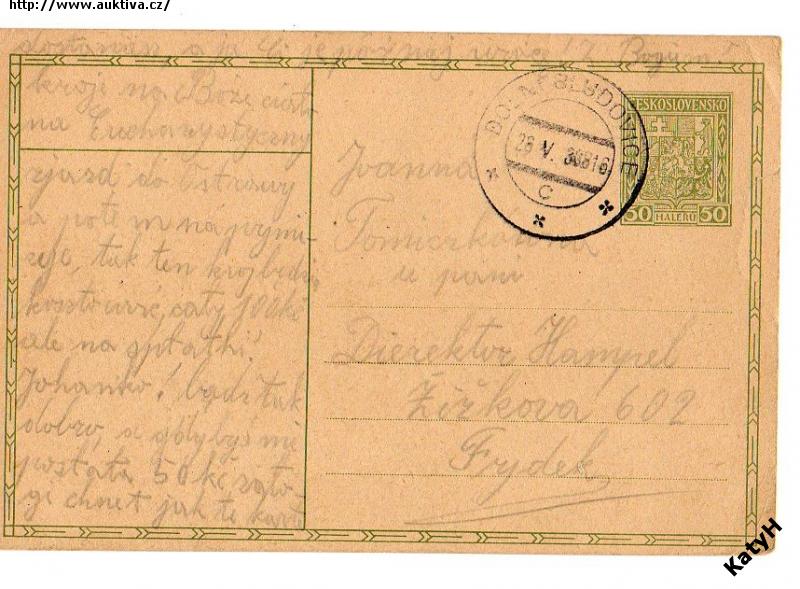 http://www.auktiva.cz/
dostaniesz a ja Ci je pożnaj wrócę! Z Bogiem!
kroje na Boże ciało
na Eucharystyczny
zjazd do Ostrawy
a potem na prymi-
cyje, tak ten kroj będzie
kosztować, cały 100 kč
ale na spłatki!
Johanko! bądź tak
dobro, a gdybyś mi
posłała 50 kč zało-
gi chneť jak te kart
DOLNÍ BLUDOVICE
28 V. 36 816
C
ČESKOSLOVENSKO
50 HALÉŘŮ 50
Joanna
Tomiczkówna
u pani
Dierektor Hampel
Žižkova 602
Frydek
KatyH